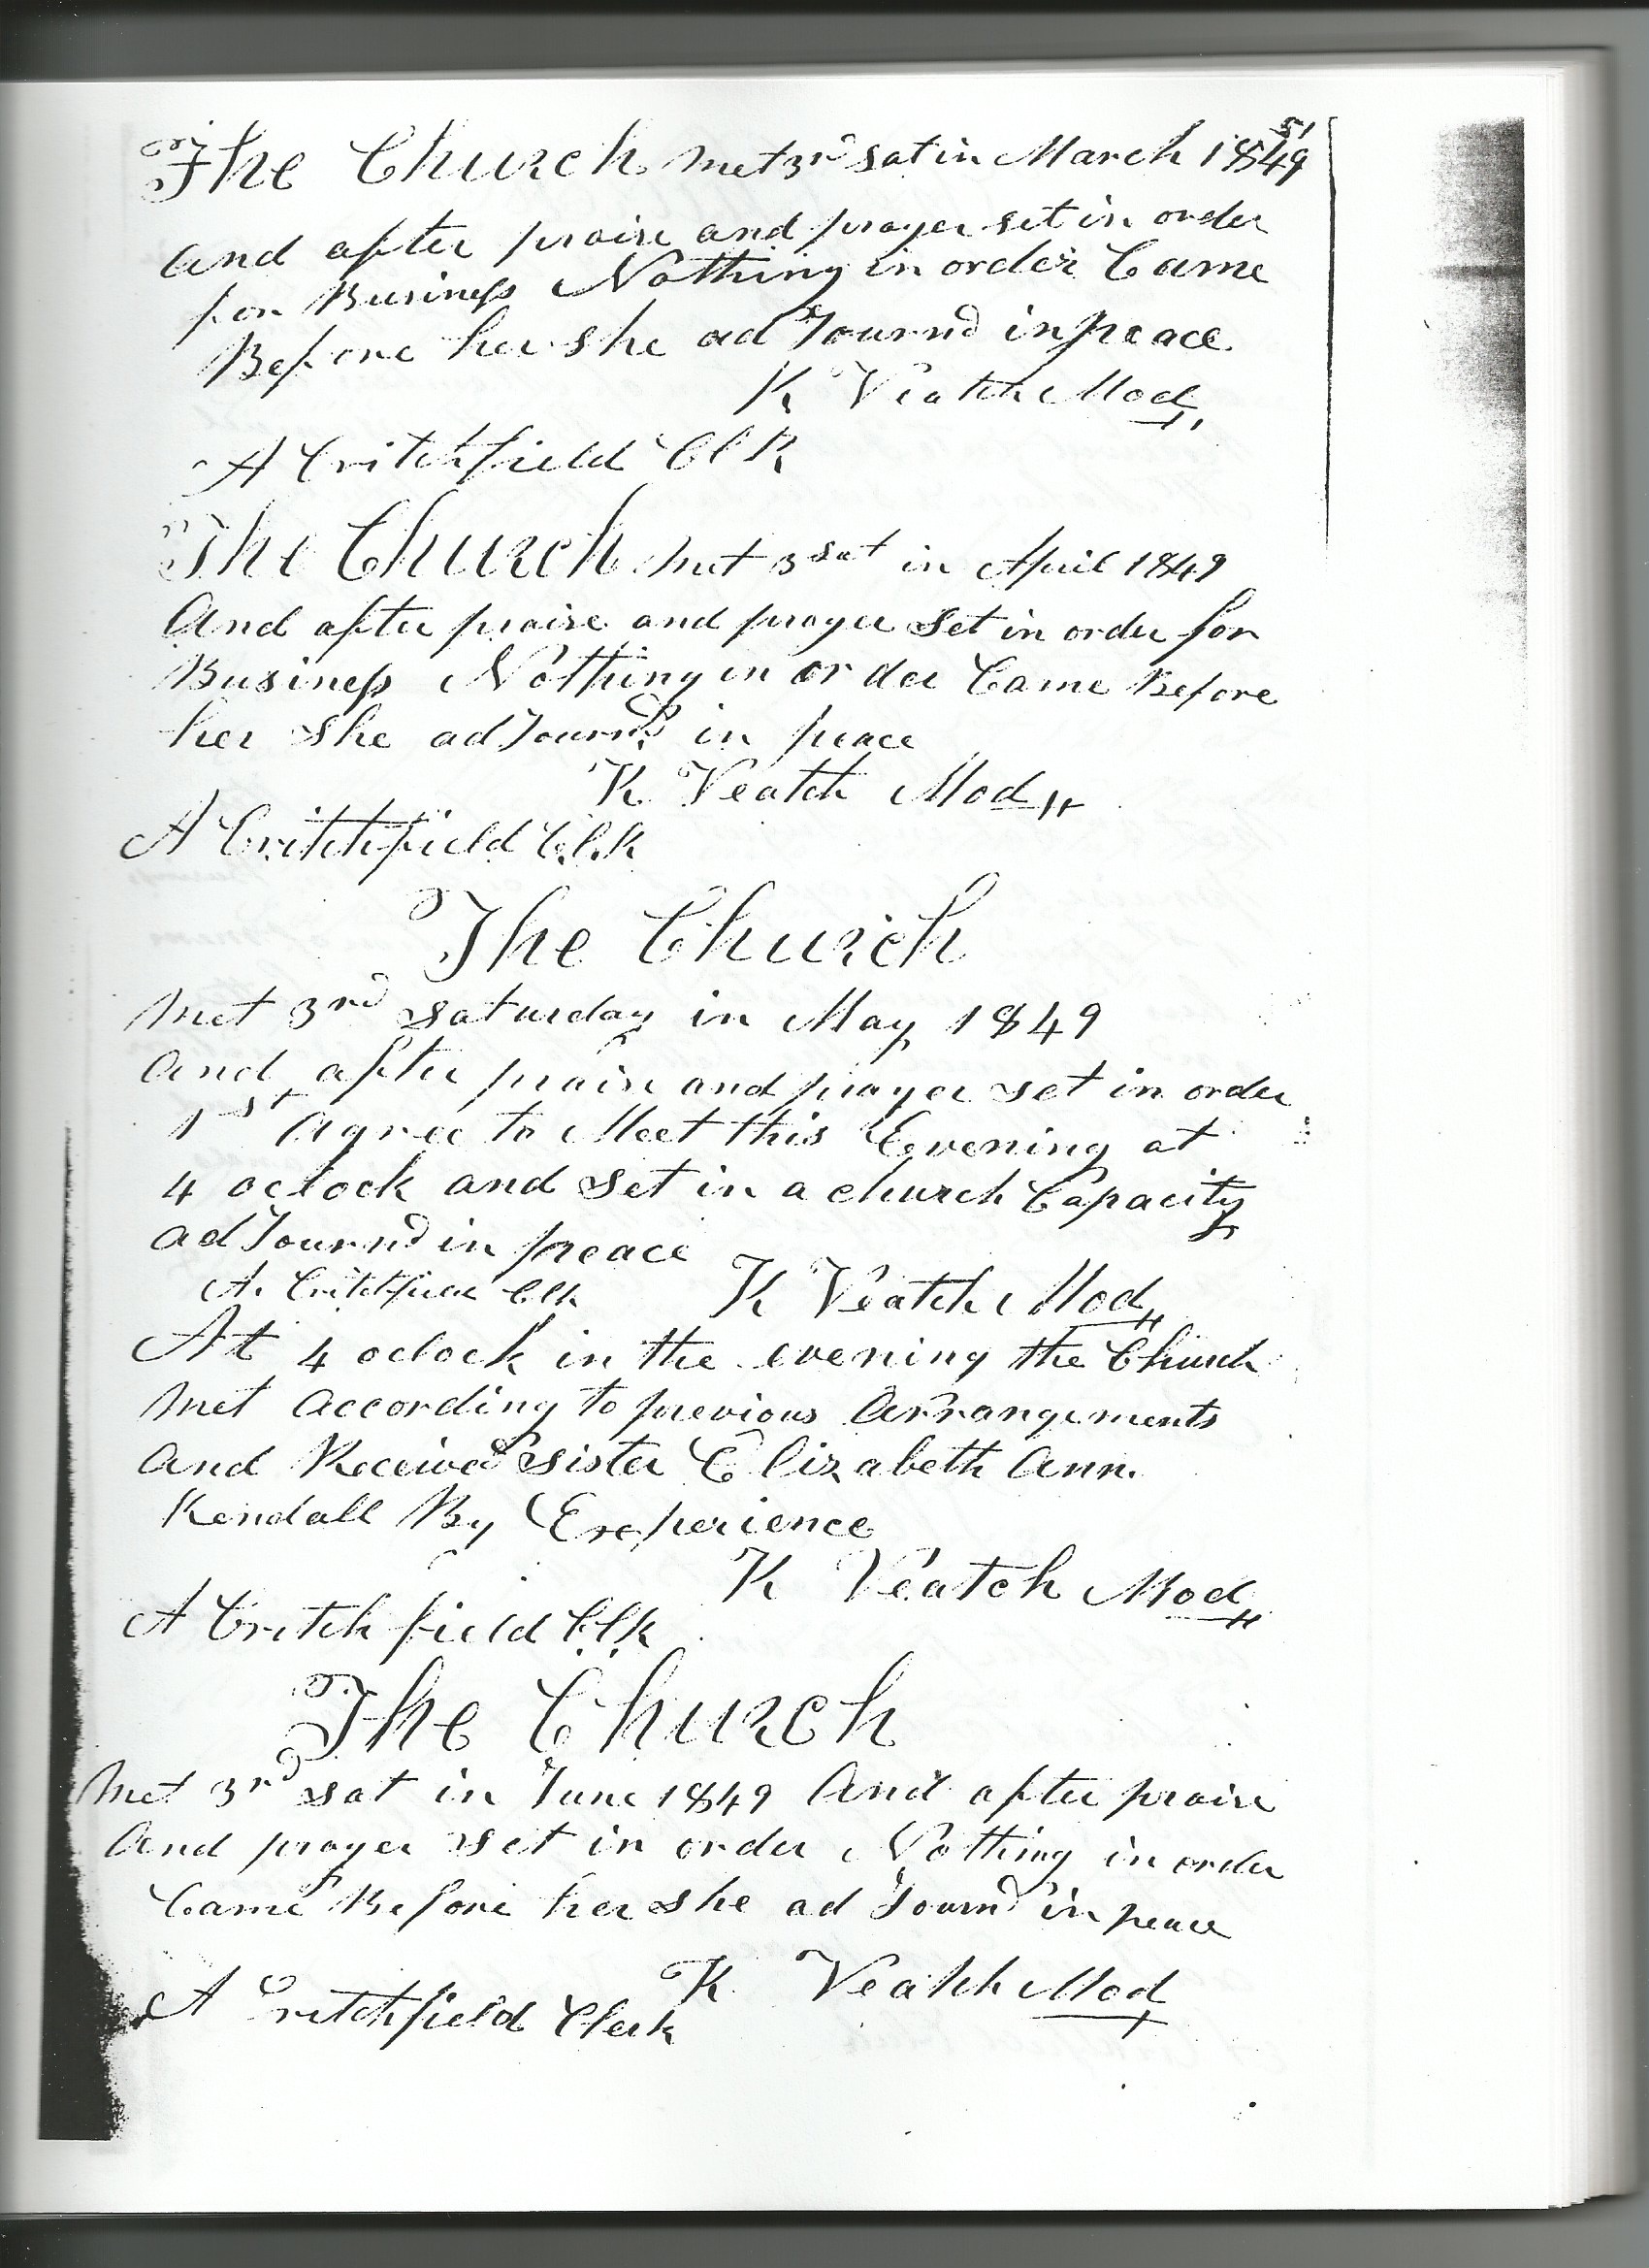 51
The Church met 3rd sat in March 1849
and after praise and prayer set in order
for Business Nothing in order Came
Before her she adJournd in peace
K Veatch Mod
A Critchfield ClK
The Church met 3 sat in April 1849
And after praise and prayer Set in order for
Business Nothing in order Came Before
her she adJournd in peace
K Veatch Mod
A Critchfield Clk
The Church
met 3rd saturday in May 1849
and after praise and prayer set in order
1st Agree to Meet this Evening at
4 oclock and set in a church Capacity
adJournd in peace
A. Critchfield Clk K Veatch Mod
At 4 oclock in the evening the Church
met according to previous Arrangements
and Received sister Elizabeth Ann
Kendall By Experience
K Veatch Mod
A Critchfield Clk
The Church
met 3rd sat in June 1849 And after praise
And prayer set in order Nothing in order
Came Before her she adJournd in peace
K Veatch Mod
A Critchfield Clerk